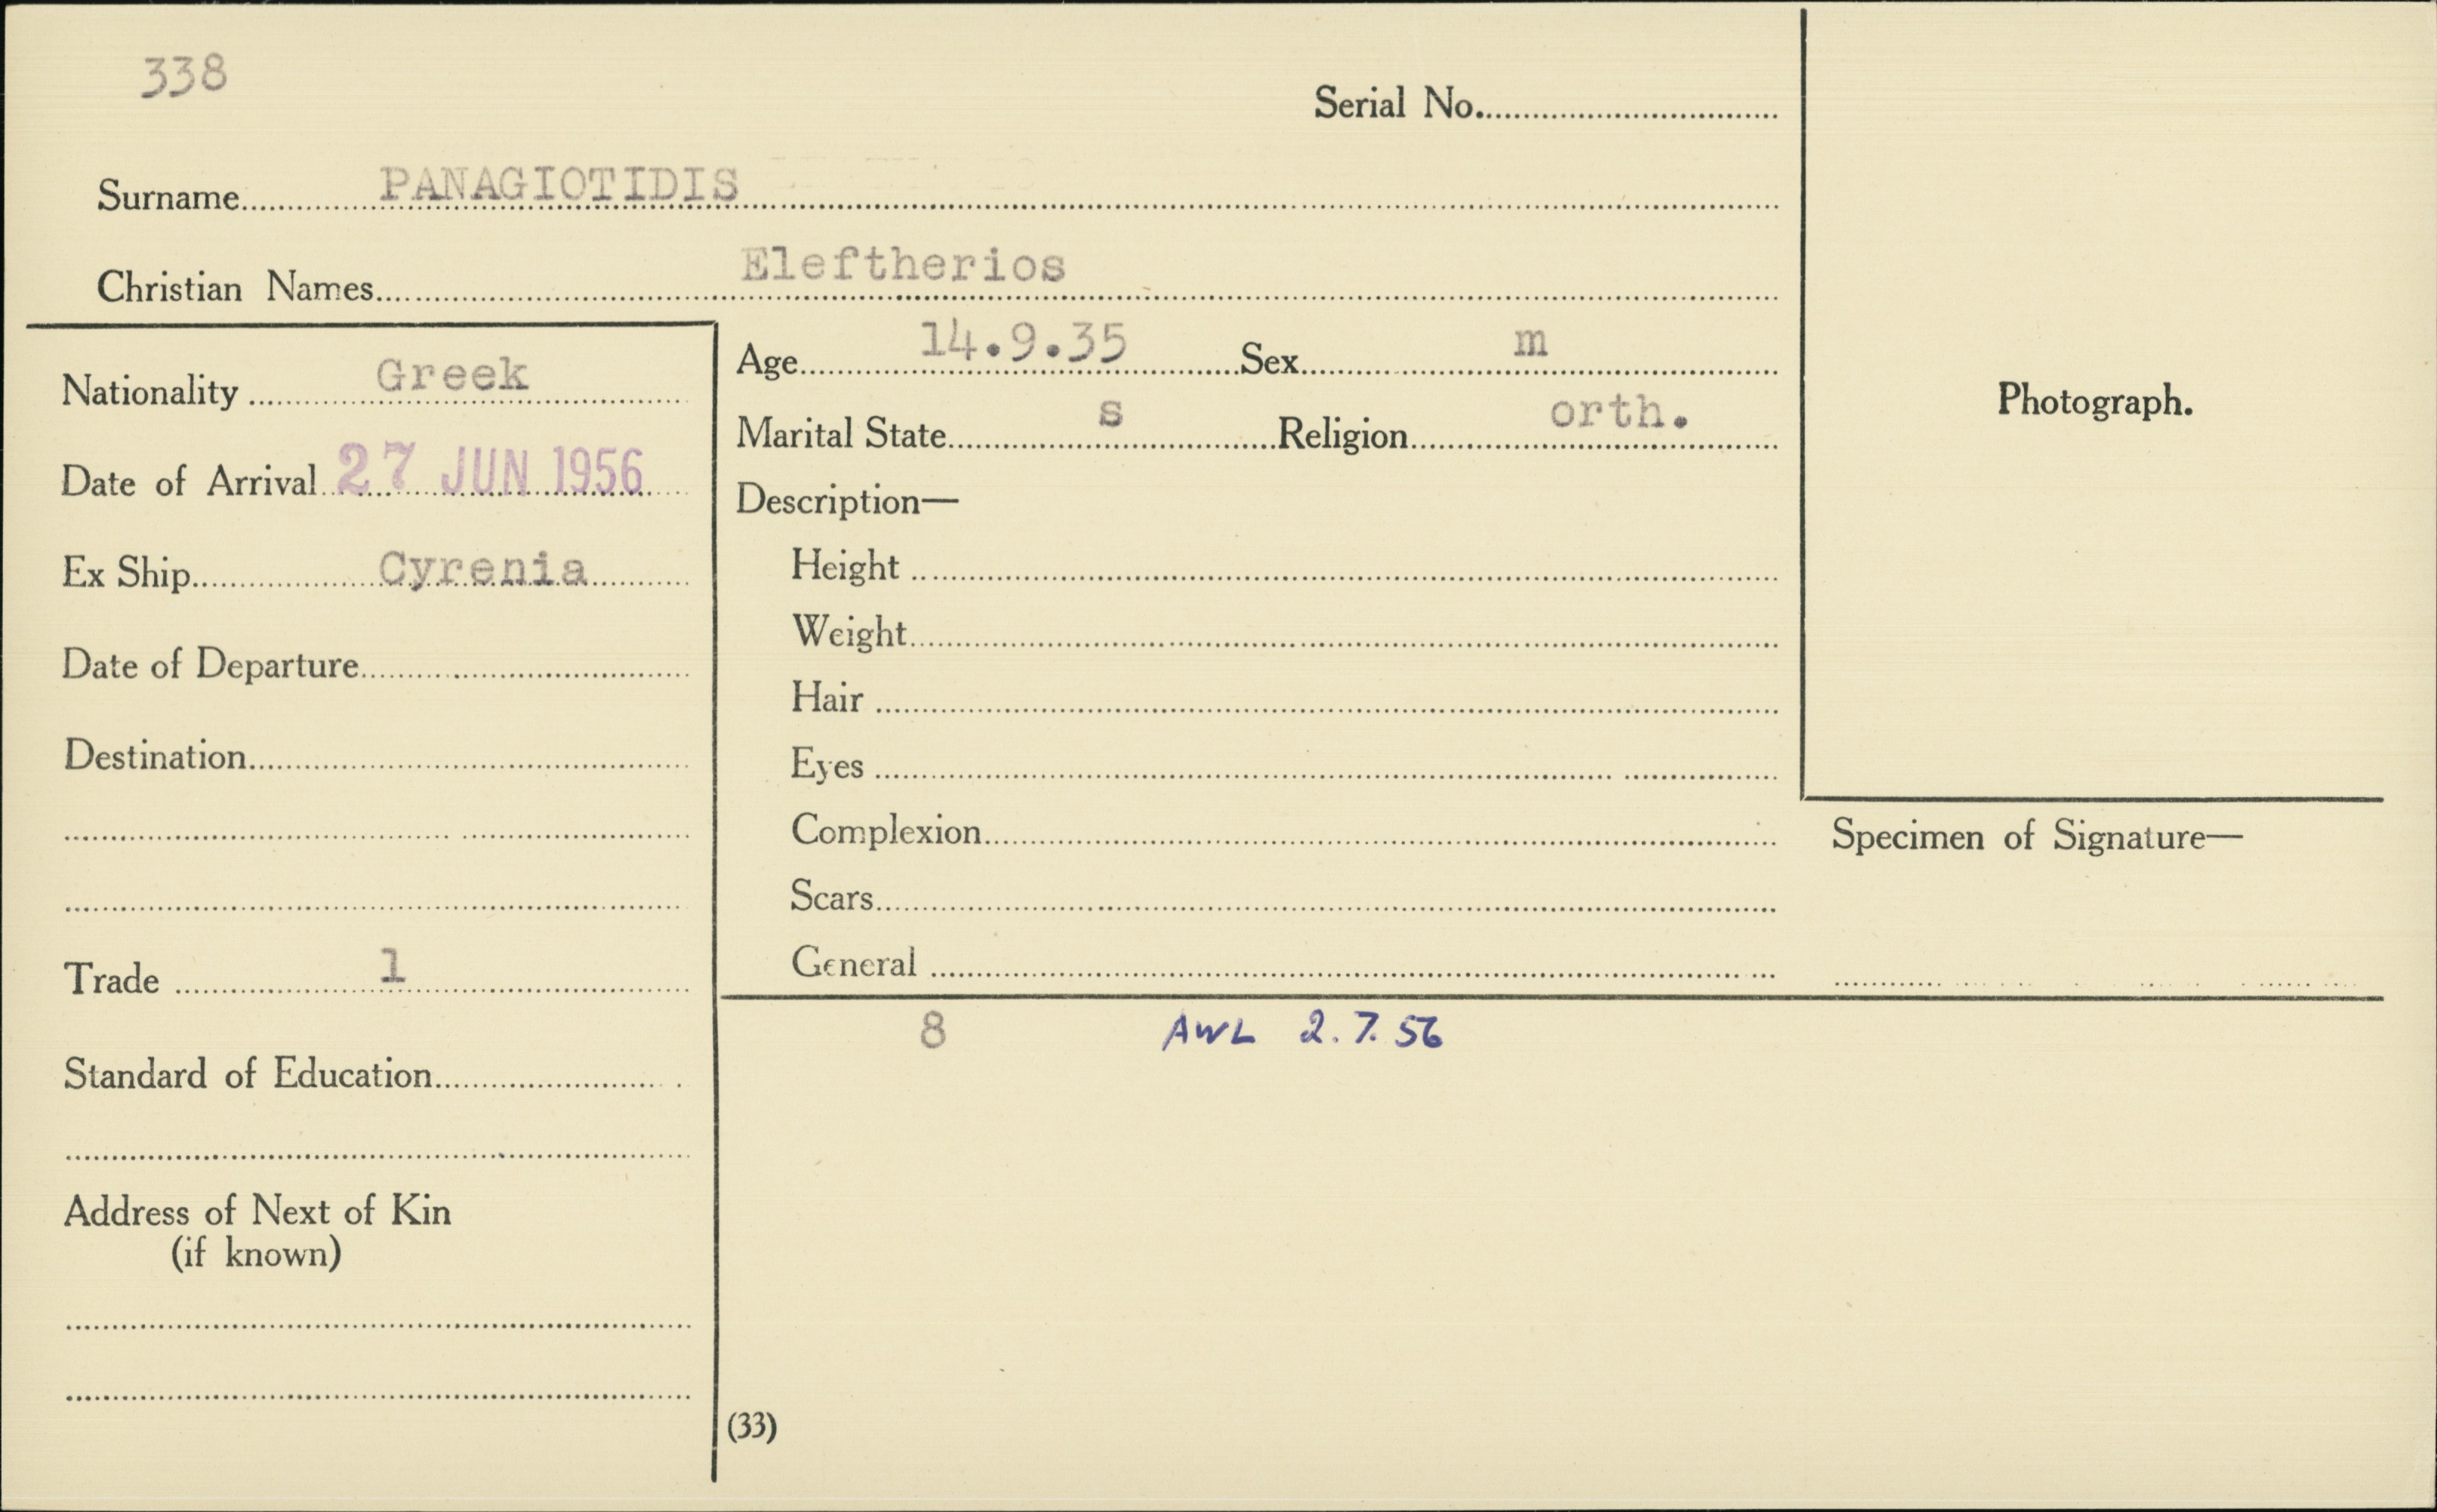 338
Serial No.
Surname PANAGIOTIDIS
Christian Names Eleftherios
Nationality Greek
Date of Arrival 27 JUN 1956
Ex Ship Cyrenia
Date of Departure
Destination
Trade 1
Standard of Education
Address of Next of Kin
(if known)
Age 14.9.35 Sex m
Marital State s Religion orth.
Description—
Height
Weight
Hair
Eyes
Complexion
Scars
General
8 AWL 2.7.56
(33)
Photograph.
Specimen of Signature—